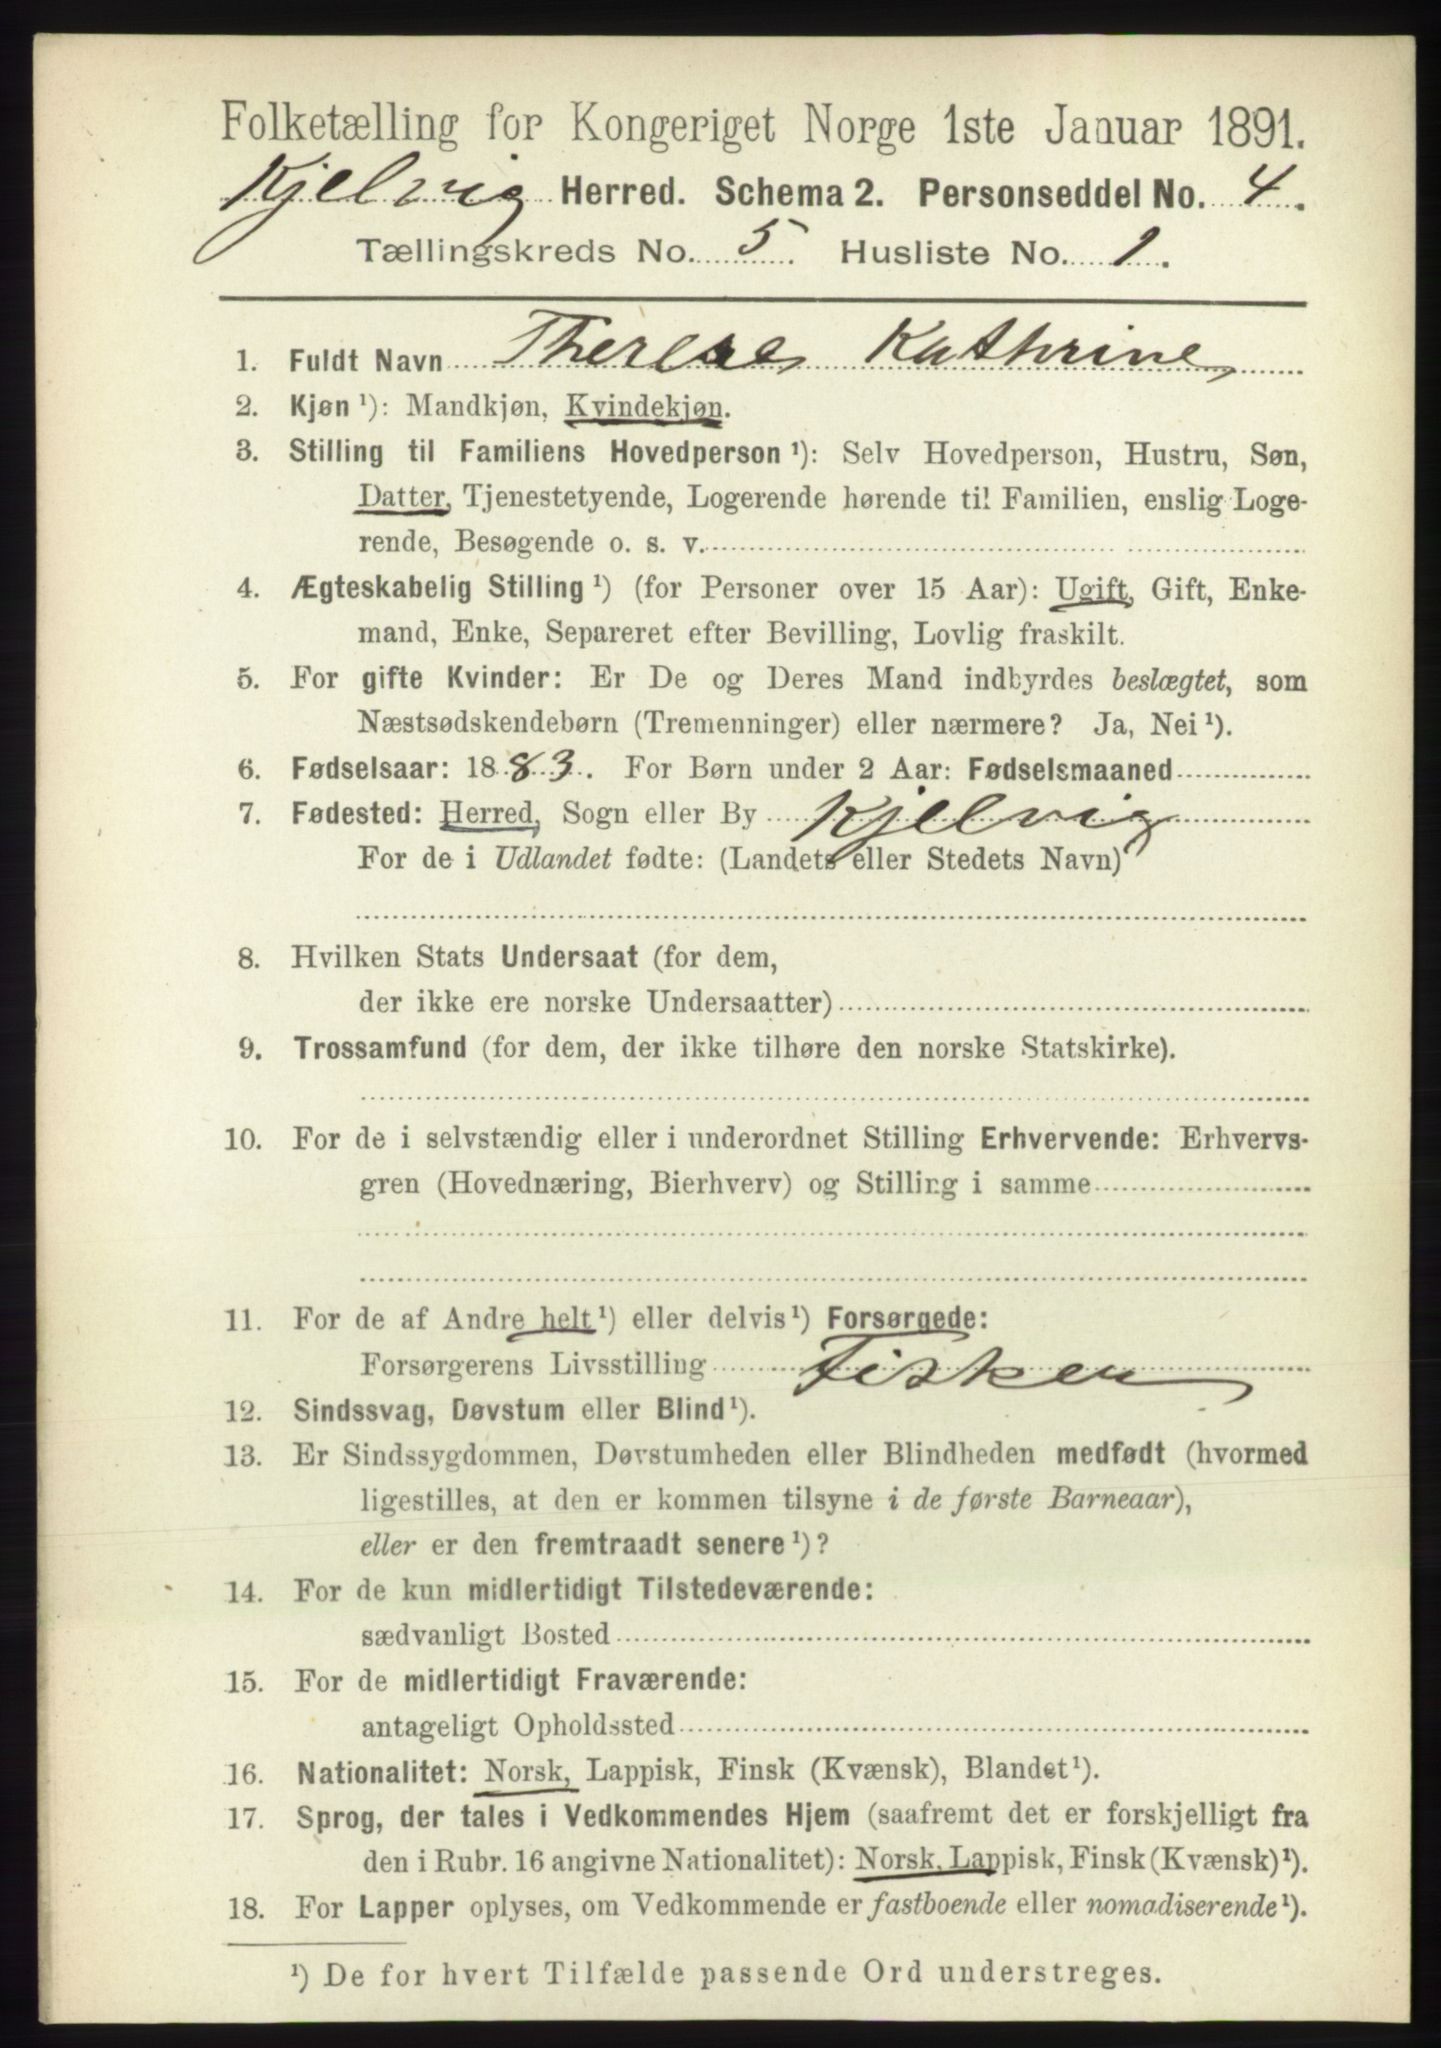 Folketælling for Kongeriget Norge 1ste Januar 1891.
Kjelvig Herred. Schema 2. Personseddel No. 4.
Tællingskreds No. 5. Husliste No. 1.
1. Fuldt Navn Therese Kathrine
2. Kjøn ¹): Mandkjøn, Kvindekjøn.
3. Stilling til Familiens Hovedperson ¹): Selv Hovedperson, Hustru, Søn,
Datter, Tjenestetyende, Logerende hørende til Familien, enslig Loge-
rende, Besøgende o. s. v.
4. Ægteskabelig Stilling ¹) (for Personer over 15 Aar): Ugift, Gift, Enke-
mand, Enke, Separeret efter Bevilling, Lovlig fraskilt.
5. For gifte Kvinder: Er De og Deres Mand indbyrdes beslægtet, som
Næstsødskendebørn (Tremenninger) eller nærmere? Ja, Nei ¹).
6. Fødselsaar: 1883. For Børn under 2 Aar: Fødselsmaaned
7. Fødested: Herred, Sogn eller By Kjelvig
For de i Udlandet fødte: (Landets eller Stedets Navn)
8. Hvilken Stats Undersaat (for dem,
der ikke ere norske Undersaatter)
9. Trossamfund (for dem, der ikke tilhøre den norske Statskirke).
10. For de i selvstændig eller i underordnet Stilling Erhvervende: Erhvervs-
gren (Hovednæring, Bierhverv) og Stilling i samme
11. For de af Andre helt ¹) eller delvis ¹) Forsørgede:
Forsørgerens Livsstilling Fisker
12. Sindssvag, Døvstum eller Blind ¹).
13. Er Sindssygdommen, Døvstumheden eller Blindheden medfødt (hvormed
ligestilles, at den er kommen tilsyne i de første Barneaar),
eller er den fremtraadt senere ¹)?
14. For de kun midlertidigt Tilstedeværende:
sædvanligt Bosted
15. For de midlertidigt Fraværende:
antageligt Opholdssted
16. Nationalitet: Norsk, Lappisk, Finsk (Kvænsk), Blandet ¹).
17. Sprog, der tales i Vedkommendes Hjem (saafremt det er forskjelligt fra
den i Rubr. 16 angivne Nationalitet): Norsk, Lappisk, Finsk (Kvænsk) ¹).
18. For Lapper oplyses, om Vedkommende er fastboende eller nomadiserende ¹).
¹) De for hvert Tilfælde passende Ord understreges.